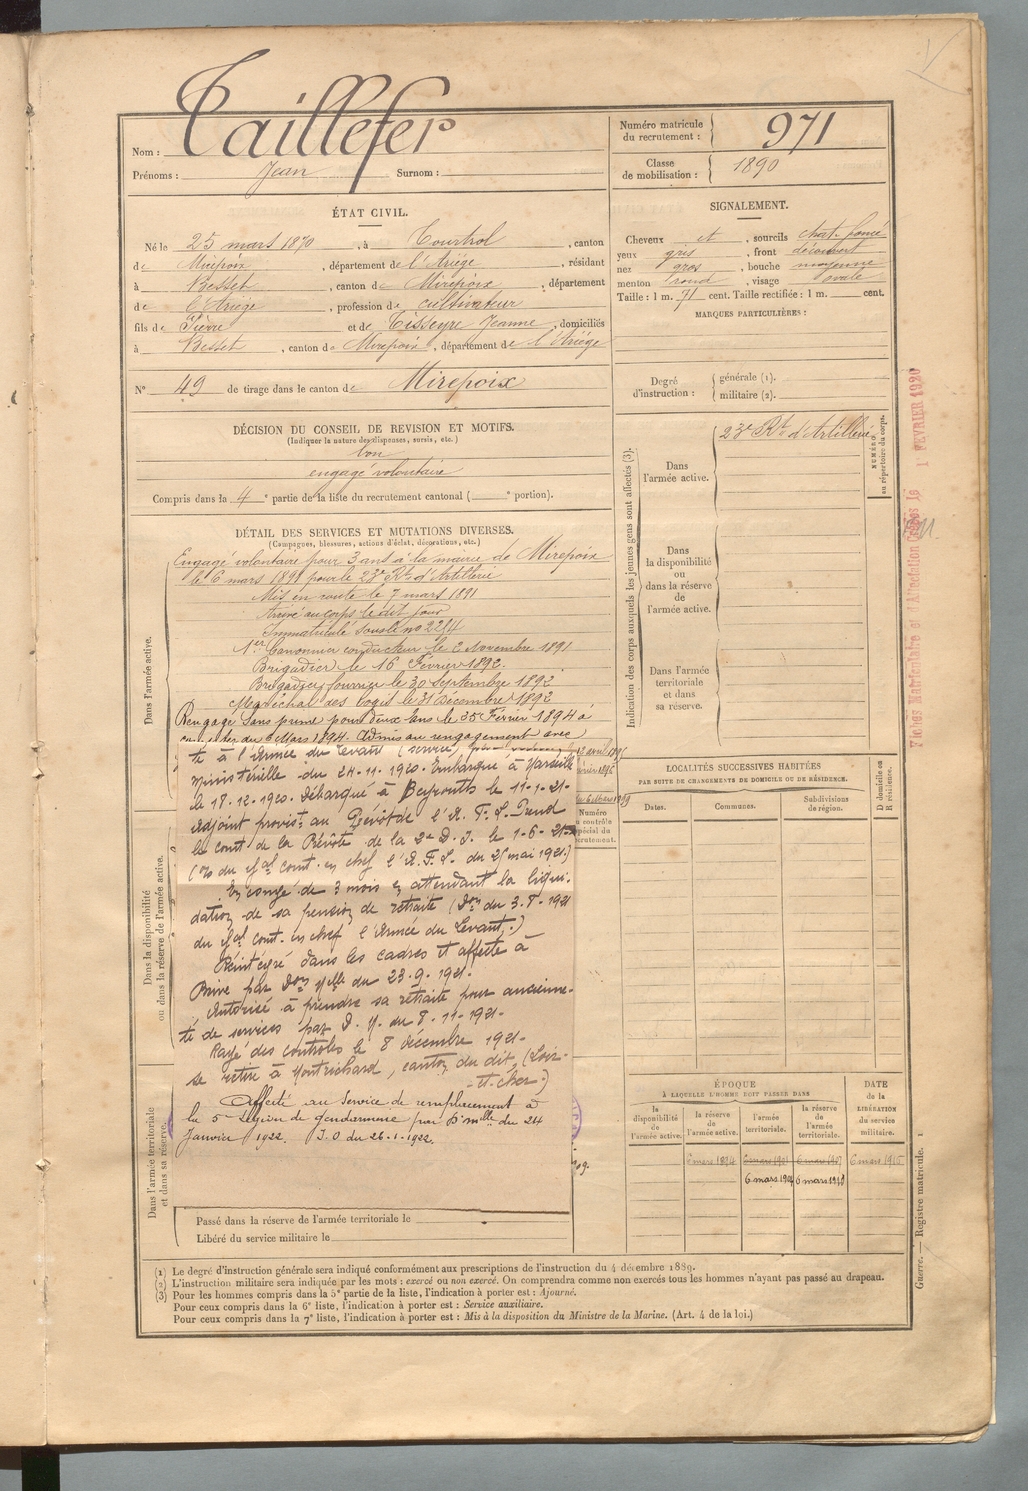 Nom : Taillefer
Prénoms : Jean Surnom :
Numéro matricule du recrutement : 971
Classe de mobilisation : 1890
ÉTAT CIVIL.
Né le 25 mars 1870, à Tourtrol, canton
de Mirepoix, département de l'Ariège, résidant
à Besset, canton de Mirepoix, département
de l'Ariège, profession de cultivateur
fils de Pierre et de Tisseyre Jeanne, domiciliés
à Besset, canton de Mirepoix, département de l'Ariège
N° 49 de tirage dans le canton de Mirepoix
SIGNALEMENT.
Cheveux et, sourcils chat. foncé
yeux gris, front découvert
nez gros, bouche moyenne
menton rond, visage ovale
Taille : 1 m. 71 cent. Taille rectifiée : 1 m. cent.
MARQUES PARTICULIÈRES :
Degré d'instruction : générale (1).
militaire (2).
DÉCISION DU CONSEIL DE REVISION ET MOTIFS.
(Indiquer la nature des dispenses, sursis, etc.)
bon
engagé volontaire
Compris dans la 4e partie de la liste du recrutement cantonal ( e portion).
DÉTAIL DES SERVICES ET MUTATIONS DIVERSES.
(Campagnes, blessures, actions d'éclat, décorations, etc.)
Engagé volontaire pour 3 ans à la mairie de Mirepoix
le 6 mars 1891 pour le 23e Rt d'Artillerie
Mis en route le 7 mars 1891
Arrivé au corps le dit jour
Immatriculé sous le no 2214
1er Canonnier conducteur le 2 Novembre 1891
Brigadier le 16 Février 1892.
Brigadier fourrier le 30 Septembre 1892
Maréchal des logis le 31 Décembre 1892
Rengagé sans prime pour deux ans le Février 1894 à
compter du 6 Mars 1894. Admis au rengagement avec
té à l'Armée du Levant (service)
Ministérielle du 24-11-1920. Embarqué à Marseille
le 18-12-1920. Débarqué à Beyrouth le 11-1-21-
Adjoint provist au Prévôt de l'A. F. L. Prend
le comt de la Prévôté de la 2e D. I. le 1-6-21-
du Gal comt. en chef l'A. F. L. du mai 1921.)
En congé de 3 mois en attendant la liqui-
dation de sa pension de retraite (Don du 1921
du Gal comt. en chef l'Armée du Levant.)
Réintégré dans les cadres et affecté à
Brive par Don Mlle du 23-9-1921.
Autorisé à prendre sa retraite pour ancienne-
té de services par D. M. du 8-11-1921-
Rayé des contrôles le 8 décembre 1921-
se retire à Montrichard, canton du dit, (Loir-
-et-Cher)
Affecté au Service de remplacement à
la 5e légion de gendarmerie par Dn mlle du 24
Janvier 1922. J.O du 26-1-1922.
Dans l'armée active.
Dans la disponibilité ou dans la réserve de l'armée active.
Dans l'armée territoriale et dans sa réserve.
Passé dans la réserve de l'armée territoriale le
Libéré du service militaire le
Indication des corps auxquels les jeunes gens sont affectés (3).
Dans l'armée active. 23e Rt d'Artillerie
NUMÉRO au répertoire du corps.
Dans la disponibilité ou dans la réserve de l'armée active.
Dans l'armée territoriale et dans sa réserve.
LOCALITÉS SUCCESSIVES HABITÉES
PAR SUITE DE CHANGEMENTS DE DOMICILE OU DE RÉSIDENCE.
Dates. Communes. Subdivisions de région. D domicile ou R résidence.
ÉPOQUE
À LAQUELLE L'HOMME DOIT PASSER DANS
la disponibilité de l'armée active. la réserve de l'armée active. l'armée territoriale. la réserve de l'armée territoriale.
DATE de la LIBÉRATION du service militaire.
6 mars 1894 6 mars 1901 6 mars 1907 6 mars 1915
6 mars 1904 6 mars 1910
(1) Le degré d'instruction générale sera indiqué conformément aux prescriptions de l'instruction du 4 décembre 1889.
(2) L'instruction militaire sera indiquée par les mots : exercé ou non exercé. On comprendra comme non exercés tous les hommes n'ayant pas passé au drapeau.
(3) Pour les hommes compris dans la 5e partie de la liste, l'indication à porter est : Ajourné.
Pour ceux compris dans la 6e liste, l'indication à porter est : Service auxiliaire.
Pour ceux compris dans la 7e liste, l'indication à porter est : Mis à la disposition du Ministre de la Marine. (Art. 4 de la loi.)
Guerre. — Registre matricule. 1
Fiches Matriculaire et d'Affectation créées le 1 FÉVRIER 1920